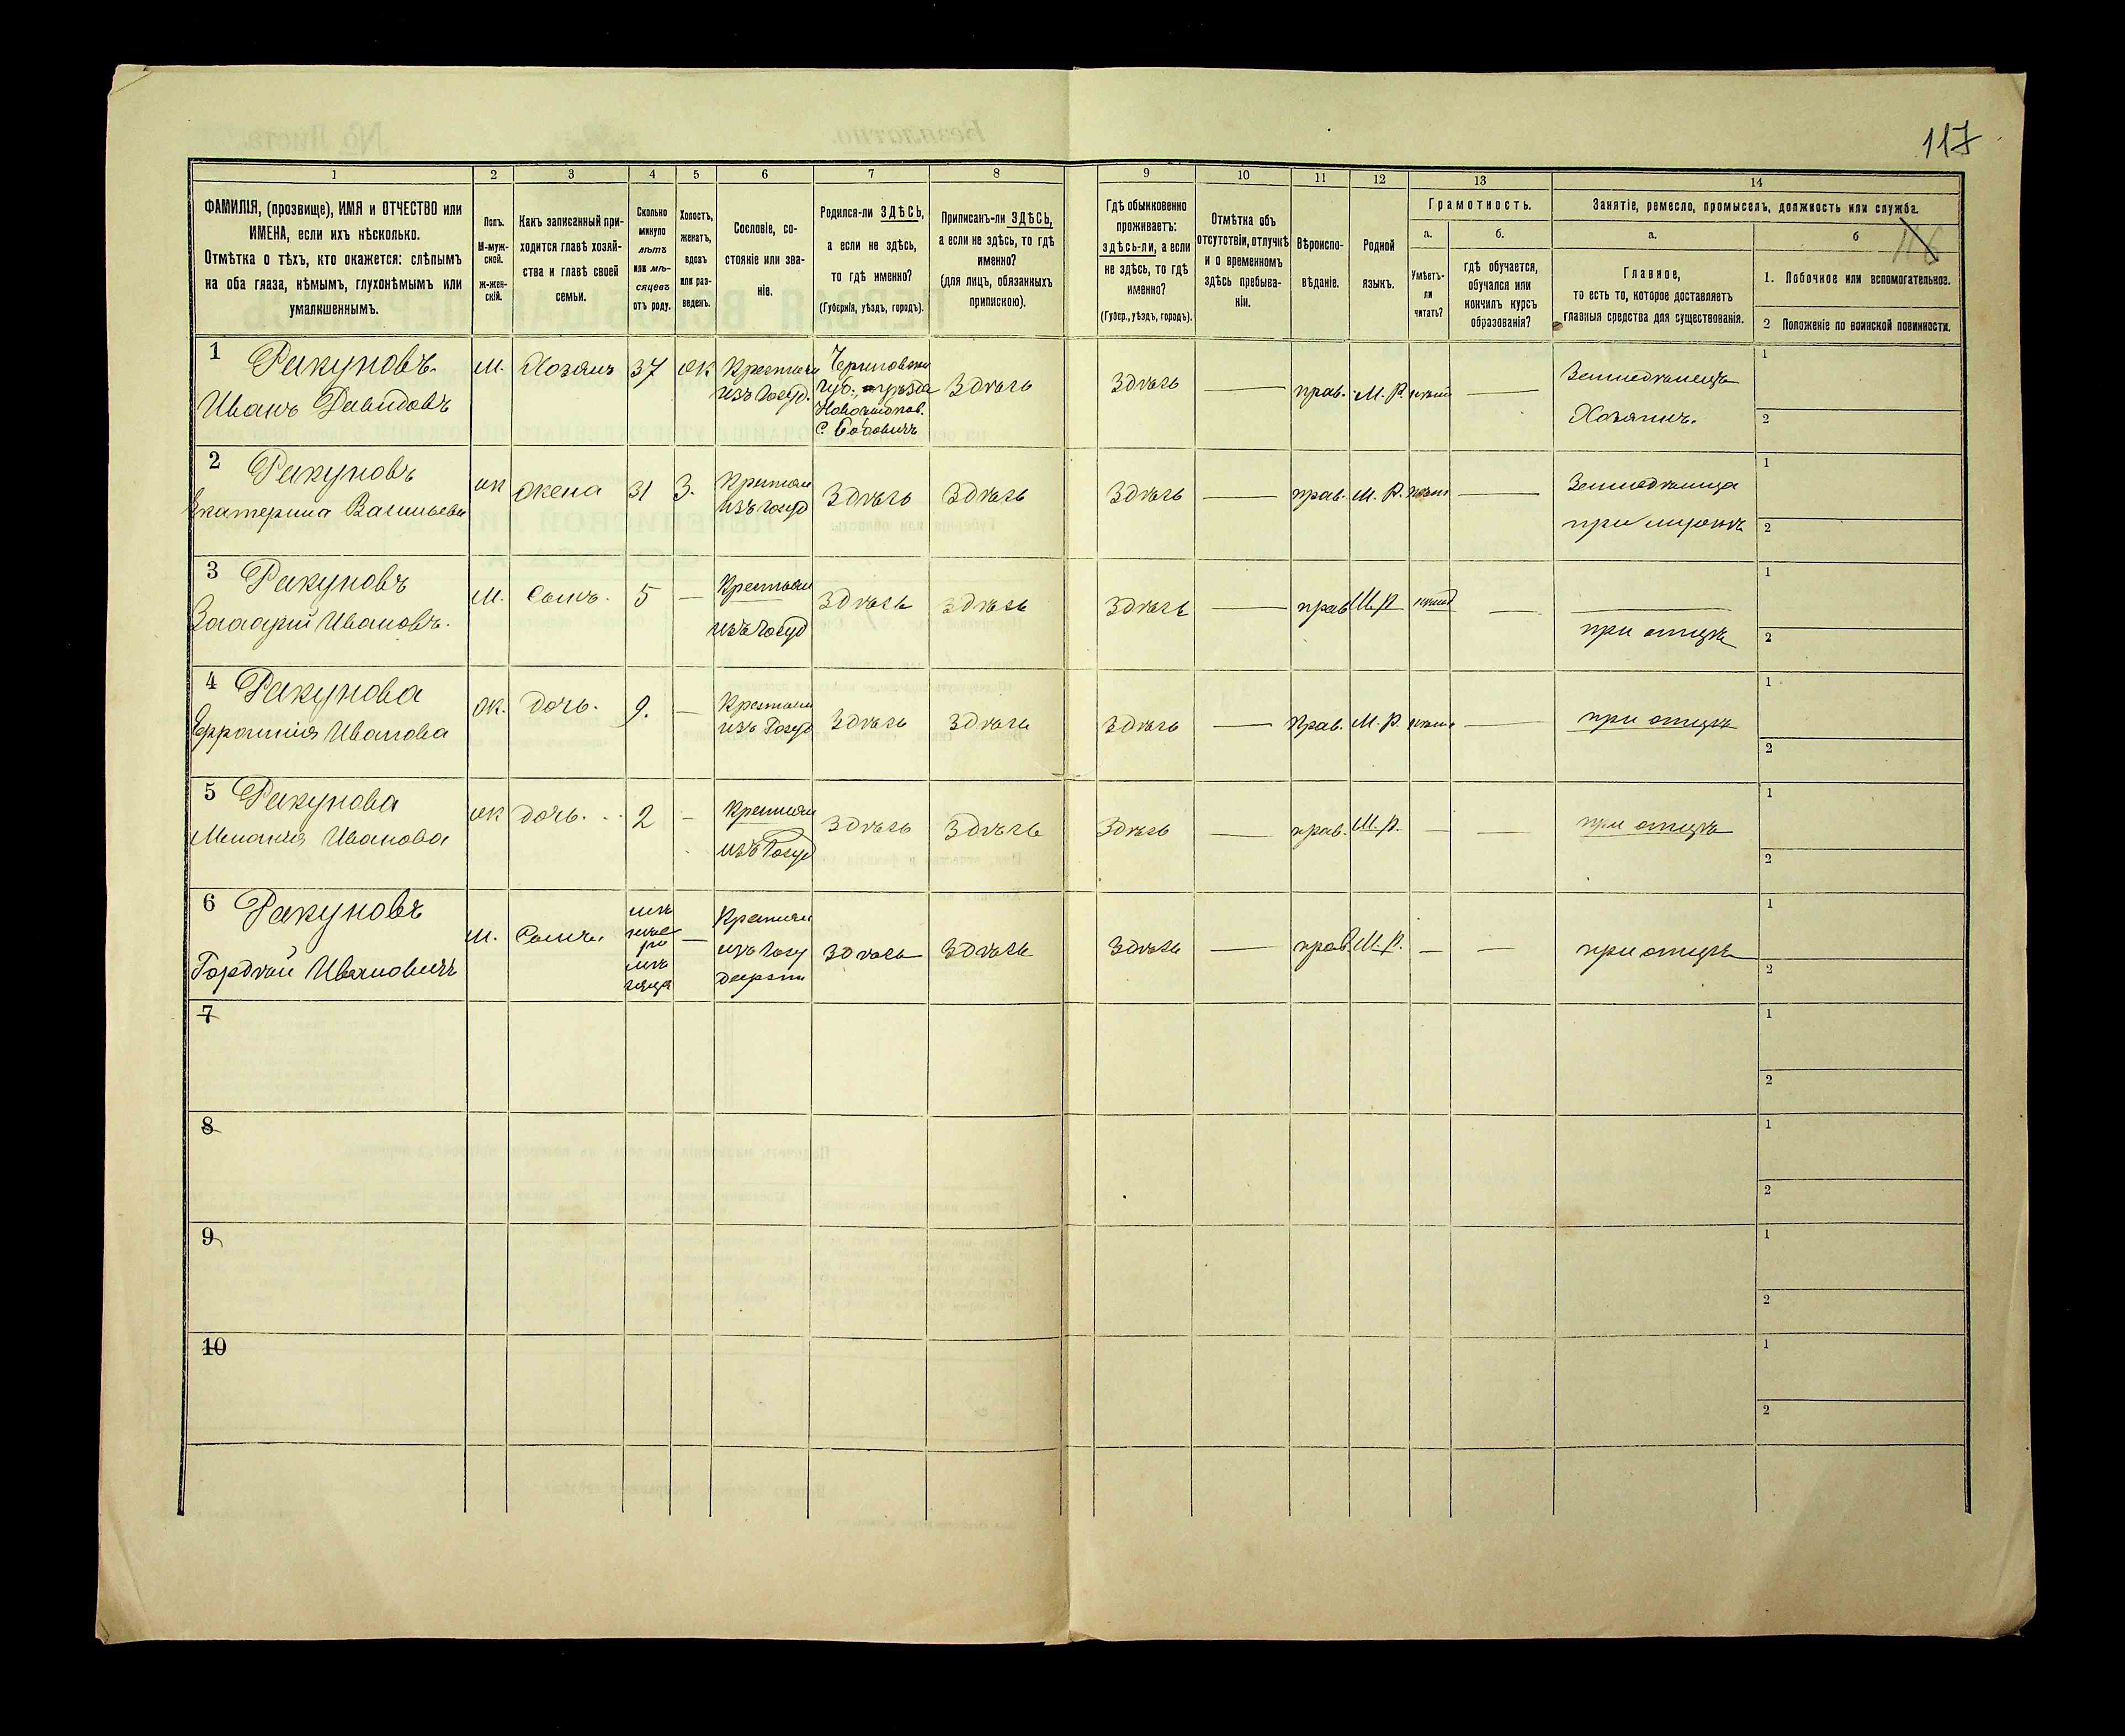 117
1 2 3 4 5 6 7 8 9 10 11 12 13 14
ФАМИЛІЯ, (прозвище), ИМЯ и ОТЧЕСТВО или
ИМЕНА, если ихъ нѣсколько.
Отмѣтка о тѣхъ, кто окажется: слѣпымъ
на оба глаза, нѣмымъ, глухонѣмымъ или
умалишеннымъ.
Полъ.
М-муж-
ской.
ж-жен-
скій.
Какъ записанный при-
ходится главѣ хозяй-
ства и главѣ своей
семьи.
Сколько
минуло
лѣтъ
или мѣ-
сяцевъ
отъ роду.
Холостъ,
женатъ,
вдовъ
или раз-
веденъ.
Сословіе, со-
стояніе или зва-
ніе.
Родился-ли ЗДѢСЬ,
а если не здѣсь,
то гдѣ именно?
(Губернія, уѣздъ, городъ).
Приписанъ-ли ЗДѢСЬ,
а если не здѣсь, то гдѣ
именно?
(для лицъ, обязанныхъ
припискою).
Гдѣ обыкновенно
проживаетъ:
здѣсь-ли, а если
не здѣсь, то гдѣ
именно?
(Губер., уѣздъ, городъ).
Отмѣтка объ
отсутствіи, отлучкѣ
и о временномъ
здѣсь пребыва-
ніи.
Вѣроиспо-
вѣданіе.
Родной
языкъ.
Грамотность.
а.
Умѣетъ-
ли
читать?
б.
гдѣ обучается,
обучался или
кончилъ курсъ
образованія?
Занятіе, ремесло, промыселъ, должность или служба.
а.
Главное,
то есть то, которое доставляетъ
главныя средства для существованія.
б
116
1. Побочное или вспомогательное.
2 Положеніе по воинской повинности.
1 Ракуновъ.
Иванъ Давидовъ
м. Хозяинъ 37 ж Крестьян
изъ Госуд.
Черниговской
Губ., уѣзда
Новозыбков.
с.
Здѣсь Здѣсь — прав. М. Р. —
Земледѣлецъ
Хозяинъ.
1
2
2 Ракуновъ
Екатерина Васильева
ж жена 31 З. Крестьян
изъ госуд
Здѣсь Здѣсь Здѣсь — прав. М. Р. —
Земледѣлица
при
1
2
3 Ракуновъ
Захарій Ивановъ.
М. Сынъ. 5 — Крестьян
изъ госуд
Здѣсь Здѣсь Здѣсь — прав М. Р —
при отцѣ
1
2
4 Ракунова
Ефросинія Иванова
ж. дочь. 9. — Крестьян
изъ Госуд
Здѣсь Здѣсь Здѣсь — Прав. М. Р. —
при отцѣ
1
2
5 Ракунова
Меланія Иванова
ж дочь. 2 — Крестьян
изъ Госуд
Здѣсь Здѣсь Здѣсь — прав. М. Р. — —
при отцѣ
1
2
6 Ракуновъ
Гордѣй Ивановичъ
м. Сынъ. — Крестьян
изъ Госу
дарств
Здѣсь Здѣсь Здѣсь — прав. М. Р. — —
при отцѣ
1
2
7
1
2
8
1
2
9
1
2
10
1
2